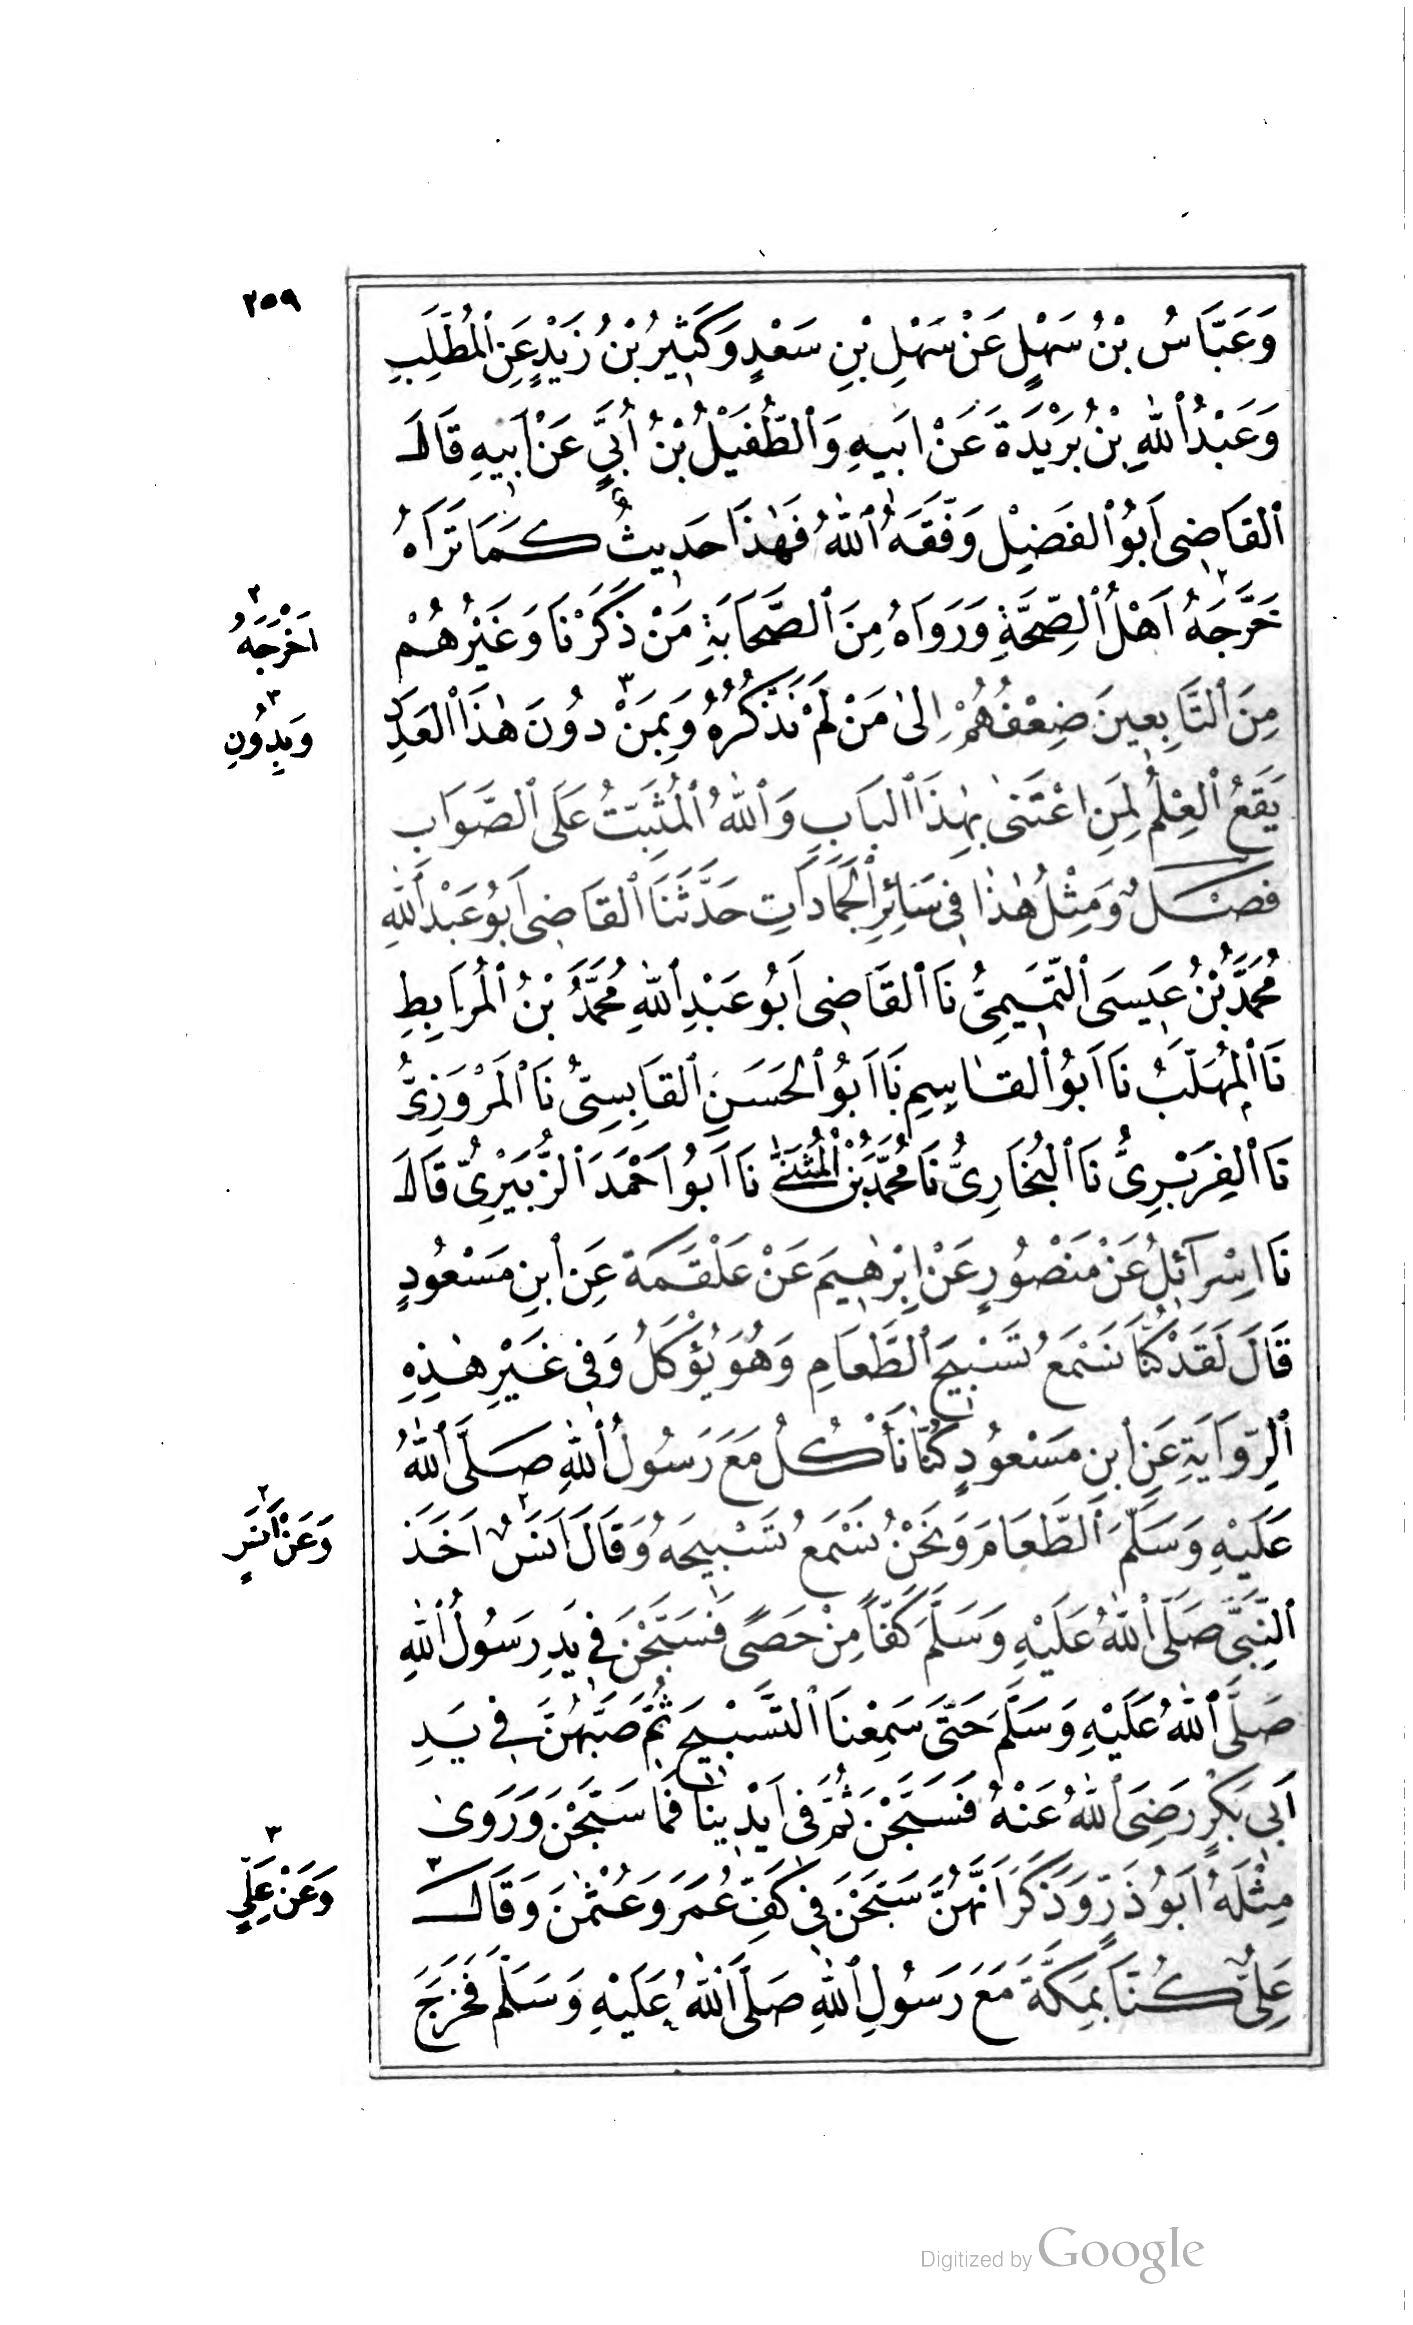 ٢٥٩
وَعَبَّاسُ بْنُ سَهْلٍ عَنْ سَهْلِ بْنِ سَعْدٍ وَكَثِيرُ بْنُ زَيْدٍ عَنِ الْمُطَّلِبِ
وَعَبْدُ اللهِ بْنُ بُرَيْدَةَ عَنْ اَبِيهِ وَالطُّفَيْلُ بْنُ أُبَيٍّ عَنْ اَبِيهِ قَالَ
الْقَاضِى اَبُو الْفَضْلِ وَفَّقَهُ اللهُ فَهٰذَا حَدِيثٌ كَمَا تَرَاهُ
خَرَّجَهُ اَهْلُ الصِّحَّةِ وَرَوَاهُ مِنَ الصَّحَابَةِ مَنْ ذَكَرْنَا وَغَيْرُهُمْ
٢
اَخْرَجَهُ
مِنَ التَّابِعِينَ ضِعْفُهُمْ اِلىٰ مَنْ لَمْ نَذْكُرْهُ وَبِمَنْ ٣ دُونَ هٰذَا الْعَدَدِ
٣
وَبِدُونِ
يَقَعُ الْعِلْمُ لِمَنِ اعْتَنىٰ بِهٰذَا الْبَابِ وَاللهُ الْمُثَبِّتُ عَلَى الصَّوَابِ
فصل وَمِثْلُ هٰذَا فِى سَائِرِ الْجَمَادَاتِ حَدَّثَنَا الْقَاضِى اَبُو عَبْدِ اللهِ
مُحَمَّدُ بْنُ عِيسَى التَّمِيمِىُّ نَا الْقَاضِى اَبُو عَبْدِ اللهِ مُحَمَّدُ بْنُ الْمُرَابِطِ
نَا الْمُهَلَّبُ نَا اَبُو الْقَاسِمِ نَا اَبُو الْحَسَنِ الْقَابِسِىُّ نَا الْمَرْوَزِىُّ
نَا الْفِرَبْرِىُّ نَا الْبُخَارِىُّ نَا مُحَمَّدُ بْنُ الْمُثَنَّى نَا اَبُو اَحْمَدَ الزُّبَيْرِىُّ قَالَ
نَا اِسْرَآئِلُ عَنْ مَنْصُورٍ عَنْ اِبْرٰهِيمَ عَنْ عَلْقَمَةَ عَنِ ابْنِ مَسْعُودٍ
قَالَ لَقَدْ كُنَّا نَسْمَعُ تَسْبِيحَ الطَّعَامِ وَهُوَ يُؤْكَلُ وَفِى غَيْرِ هٰذِهِ
الرِّوَايَةِ عَنِ ابْنِ مَسْعُودٍ كُنَّا نَأْكُلُ مَعَ رَسُولِ اللهِ صَلَّى اللهُ
عَلَيْهِ وَسَلَّمَ الطَّعَامَ وَنَحْنُ نَسْمَعُ تَسْبِيحَهُ وَقَالَ اَنَسٌ ٢ اَخَذَ
٢
وَعَنْ اَنَسٍ
النَّبِىُّ صَلَّى اللهُ عَلَيْهِ وَسَلَّمَ كَفًّا مِنْ حَصًى فَسَبَّحْنَ فِى يَدِ رَسُولِ اللهِ
صَلَّى اللهُ عَلَيْهِ وَسَلَّمَ حَتّٰى سَمِعْنَا التَّسْبِيحَ ثُمَّ صَبَّهُنَّ فِى يَدِ
اَبِى بَكْرٍ رَضِىَ اللهُ عَنْهُ فَسَبَّحْنَ ثُمَّ فِى اَيْدِينَا فَمَا سَبَّحْنَ وَرَوىٰ
مِثْلَهُ اَبُو ذَرٍّ وَذَكَرَ اَنَّهُنَّ سَبَّحْنَ فِى كَفِّ عُمَرَ وَعُثْمٰنَ وَقَالَ ٣
٣
وَعَنْ عَلِيٍّ
عَلِىٌّ كُنَّا بِمَكَّةَ مَعَ رَسُولِ اللهِ صَلَّى اللهُ عَلَيْهِ وَسَلَّمَ فَخَرَجَ
Digitized by Google